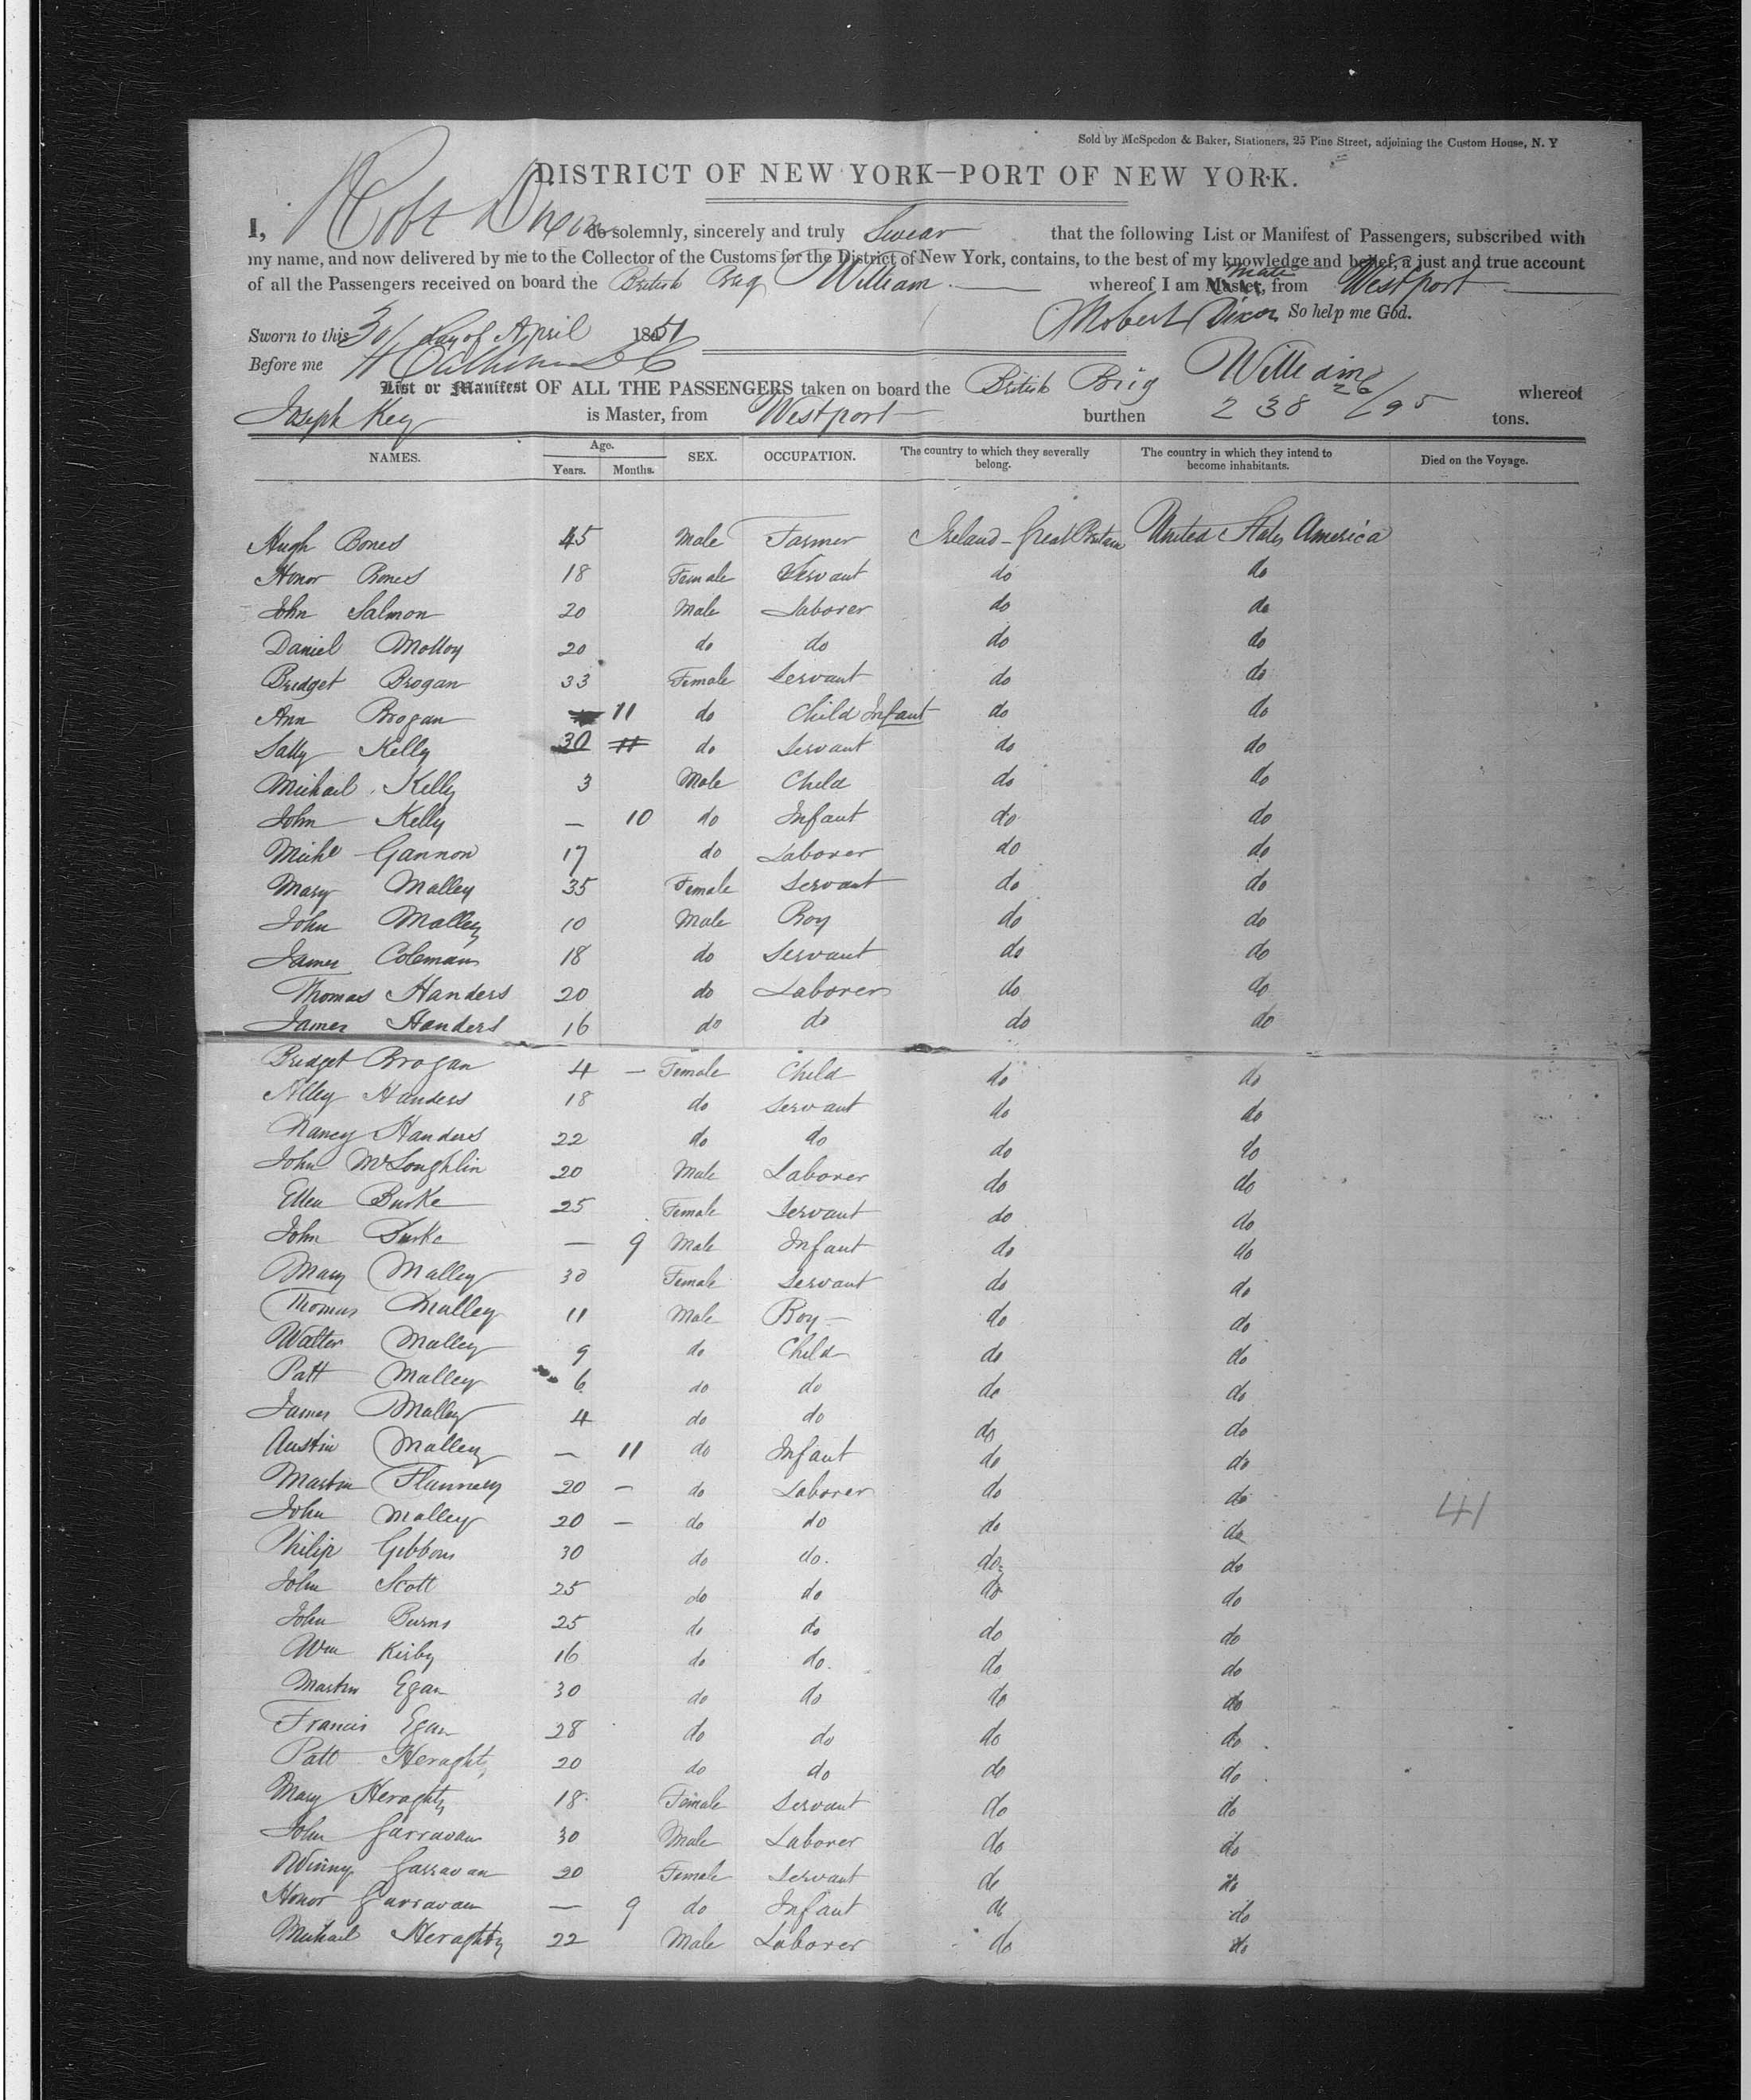 Sold by McSpedon & Baker, Stationers, 25 Pine Street, adjoining the Custom House, N. Y
DISTRICT OF NEW YORK—PORT OF NEW YORK.
I, Robt Dixon do solemnly, sincerely and truly Swear that the following List or Manifest of Passengers, subscribed with
my name, and now delivered by me to the Collector of the Customs for the District of New York, contains, to the best of my knowledge and belief, a just and true account
of all the Passengers received on board the British Brig William whereof I am Master, Mate from Westport
Robert Dixon So help me God.
Sworn to this 30 day of April 1851
Before me
List or Manifest OF ALL THE PASSENGERS taken on board the British Brig William whereof
Joseph Key is Master, from Westport burthen 238 26/95 tons.
NAMES. Age. Years. Months. SEX. OCCUPATION. The country to which they severally belong. The country in which they intend to become inhabitants. Died on the Voyage.
Hugh Bones 45 Male Farmer Ireland - Great Britain United States America
Honor Bones 18 Female Servant do do
John Salmon 20 Male Laborer do do
Daniel Molloy 20 do do do do
Bridget Brogan 33 Female Servant do do
Ann Brogan 11 do Child Infant do do
Sally Kelly 30 11 do Servant do do
Michael Kelly 3 Male Child do do
John Kelly — 10 do Infant do do
Michl Gannon 17 do Laborer do do
Mary Malley 35 Female Servant do do
John Malley 10 Male Boy do do
James Coleman 18 do Servant do do
Thomas Handers 20 do Laborer do do
James Handers 16 do do do do
Bridget Brogan 4 — Female Child do do
Alley Handers 18 do Servant do do
Nancy Handers 22 do do do do
John McLoughlin 20 Male Laborer do do
Ellen Burke 25 Female Servant do do
John Burke — 9 Male Infant do do
Mary Malley 30 Female Servant do do
Thomas Malley 11 Male Boy — do do
Walter Malley 9 do Child do do
Patt Malley 6 do do do do
James Malley 4 do do do do
Austin Malley — 11 do Infant do do
Martin Flannery 20 — do Laborer do do
John Malley 20 — do do do do 41
Philip Gibbons 30 do do. do do
John Scott 25 do do do do
John Burns 25 do do do do
Wm Kirby 16 do do. do do
Martin Egan 30 do do do do
Francis Egan 28 do do do do
Patt Heraghty 20 do do do do
Mary Heraghty 18 Female Servant do do
John Garravan 30 Male Laborer do do
Winny Garravan 20 Female Servant do do
Honor Garravan — 9 do Infant do do
Michael Heraghty 22 Male Laborer do do